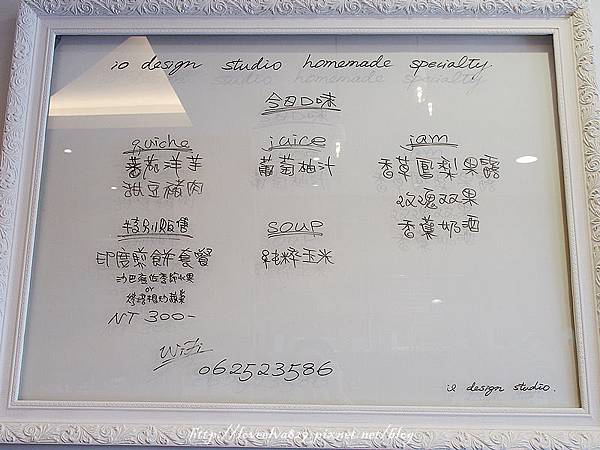 io design studio homemade specialty.
今日口味
quiche
蕃茄洋芋
甜豆豬肉
juice
葡萄柚汁
jam
香草鳳梨果醬
玫瑰双果
香蕉奶酒
特別販售
印度煎餅套餐
or
NT 300-
soup
純粹玉米
WiFi
062523586
io design studio.
http://loveelva829.pixnet.net/blog